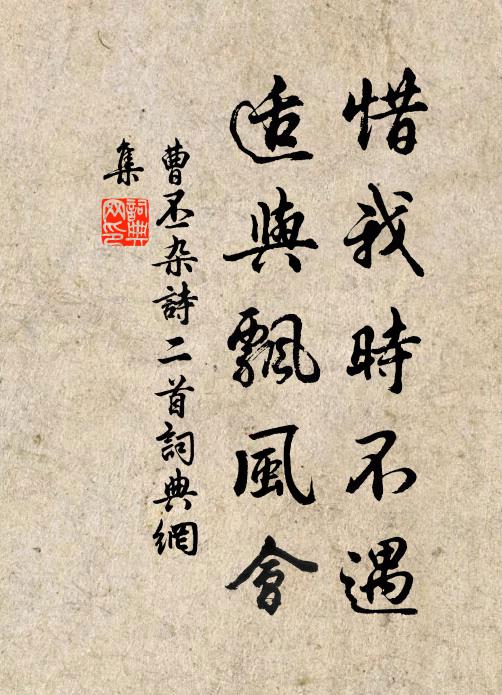 惜我時不遇
适與飄風會
曹丕杂詩二首詞典網
集
詞典
网印